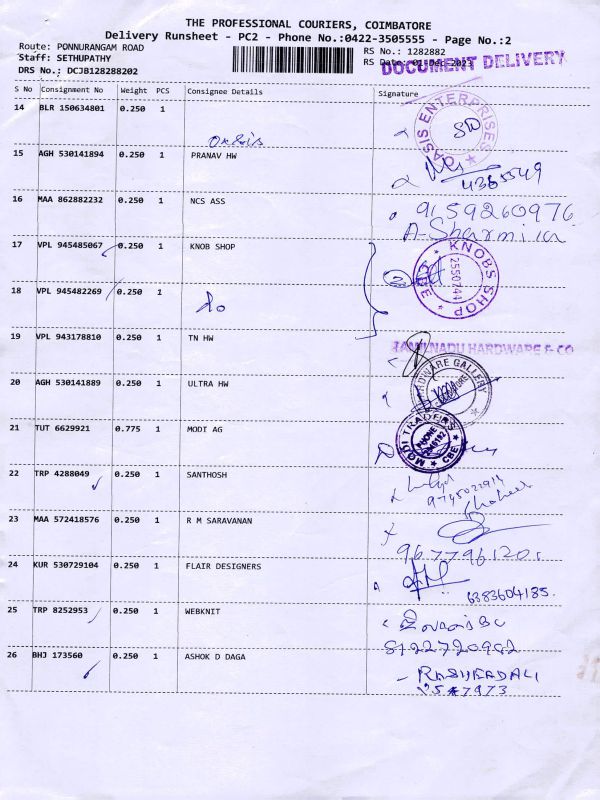 THE PROFESSIONAL COURIERS, COIMBATORE
Delivery Runsheet - PC2 - Phone No.:0422-3505555 - Page No.:2
Route: PONNURANGAM ROAD
RS No.: 1282882
Staff: SETHUPATHY
RS Date: 01-Dec-2023
DOCUMENT DELIVERY
DRS No.: DCJB128288202
S No Consignment No Weight PCS Consignee Details Signature
14 BLR 150634801 0.250 1
OASIS ENTERPRISES
15 AGH 530141894 0.250 1 PRANAV HW
4365549
16 MAA 862882232 0.250 1 NCS ASS
9159260976
A-Sharmila
17 VPL 945485067 0.250 1 KNOB SHOP
KNOBS SHOP
2550744
CBE
18 VPL 945482269 0.250 1
Do
19 VPL 943178810 0.250 1 TN HW
TAMILNADU HARDWARE & CO
20 AGH 530141889 0.250 1 ULTRA HW
HARDWARE GALLERY
21 TUT 6629921 0.775 1 MODI AG
MODI TRADERS
PHONE
CBE
22 TRP 4288049 0.250 1 SANTHOSH
9745022914
23 MAA 572418576 0.250 1 R M SARAVANAN
9677961201
24 KUR 530729104 0.250 1 FLAIR DESIGNERS
6383604185.
25 TRP 8252953 0.250 1 WEBKNIT
8122720982
26 BHJ 173560 0.250 1 ASHOK D DAGA
RASHEEDALI